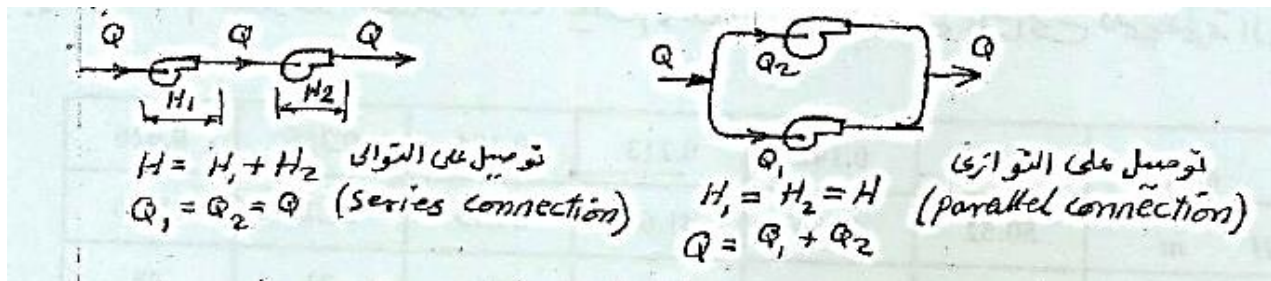 Q Q Q
H₁ H₂
H = H₁ + H₂ توصيل على التوالى
Q₁ = Q₂ = Q (series connection)
Q Q₂ Q
Q₁
توصيل على التوازى
H₁ = H₂ = H (parallel connection)
Q = Q₁ + Q₂